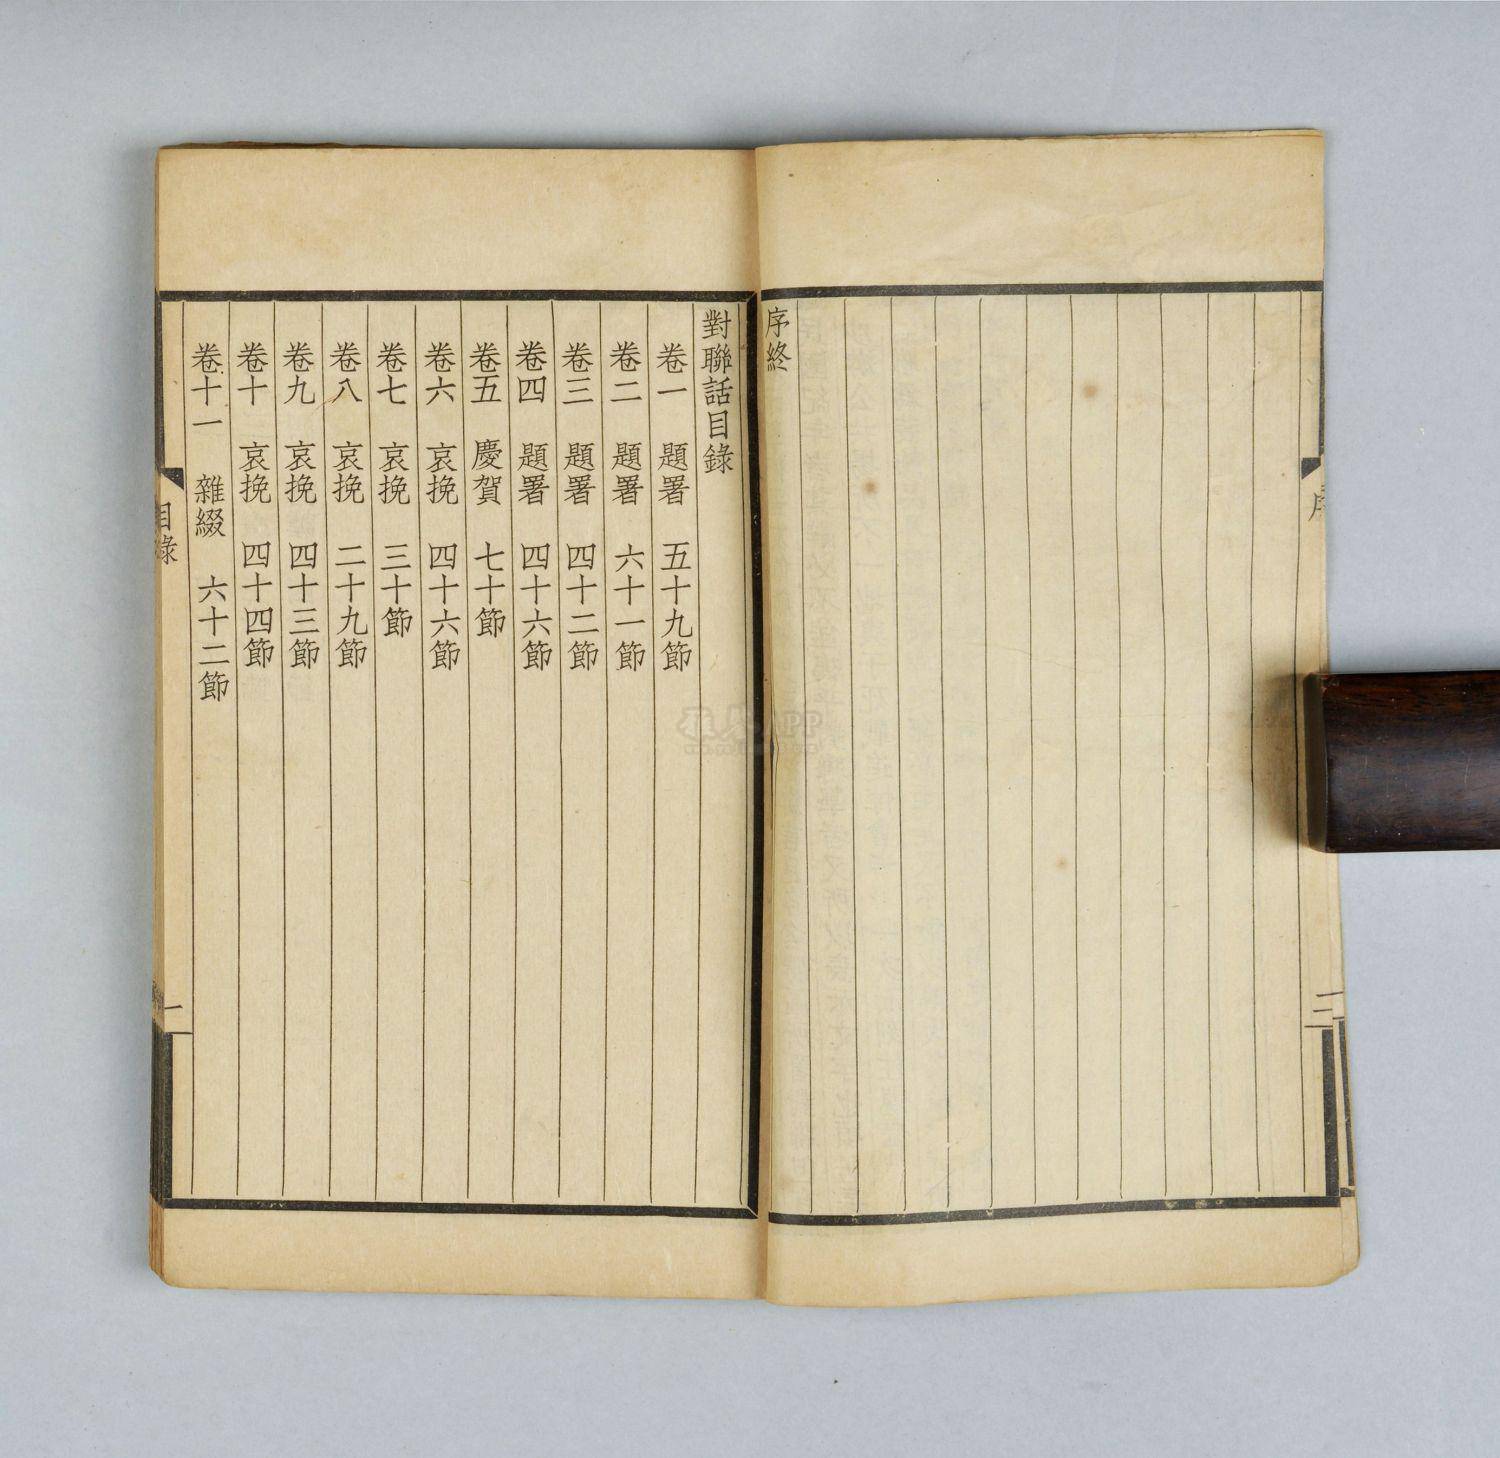 序
三
序終
對聯話目錄
卷一 題署 五十九節
卷二 題署 六十一節
卷三 題署 四十二節
卷四 題署 四十六節
卷五 慶賀 七十節
卷六 哀挽 四十六節
卷七 哀挽 三十節
卷八 哀挽 二十九節
卷九 哀挽 四十三節
卷十 哀挽 四十四節
卷十一 雜綴 六十二節
目錄